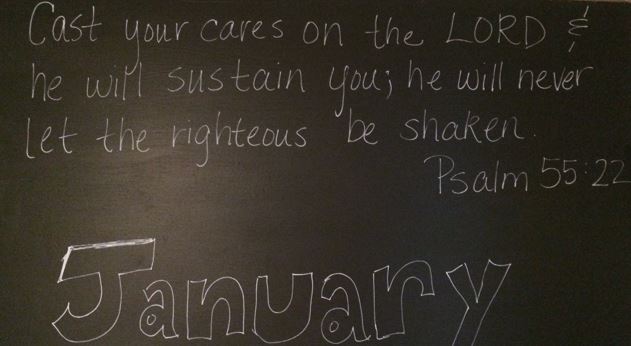 Cast your cares on the LORD &
he will sustain you; he will never
let the righteous be shaken.
Psalm 55:22
January